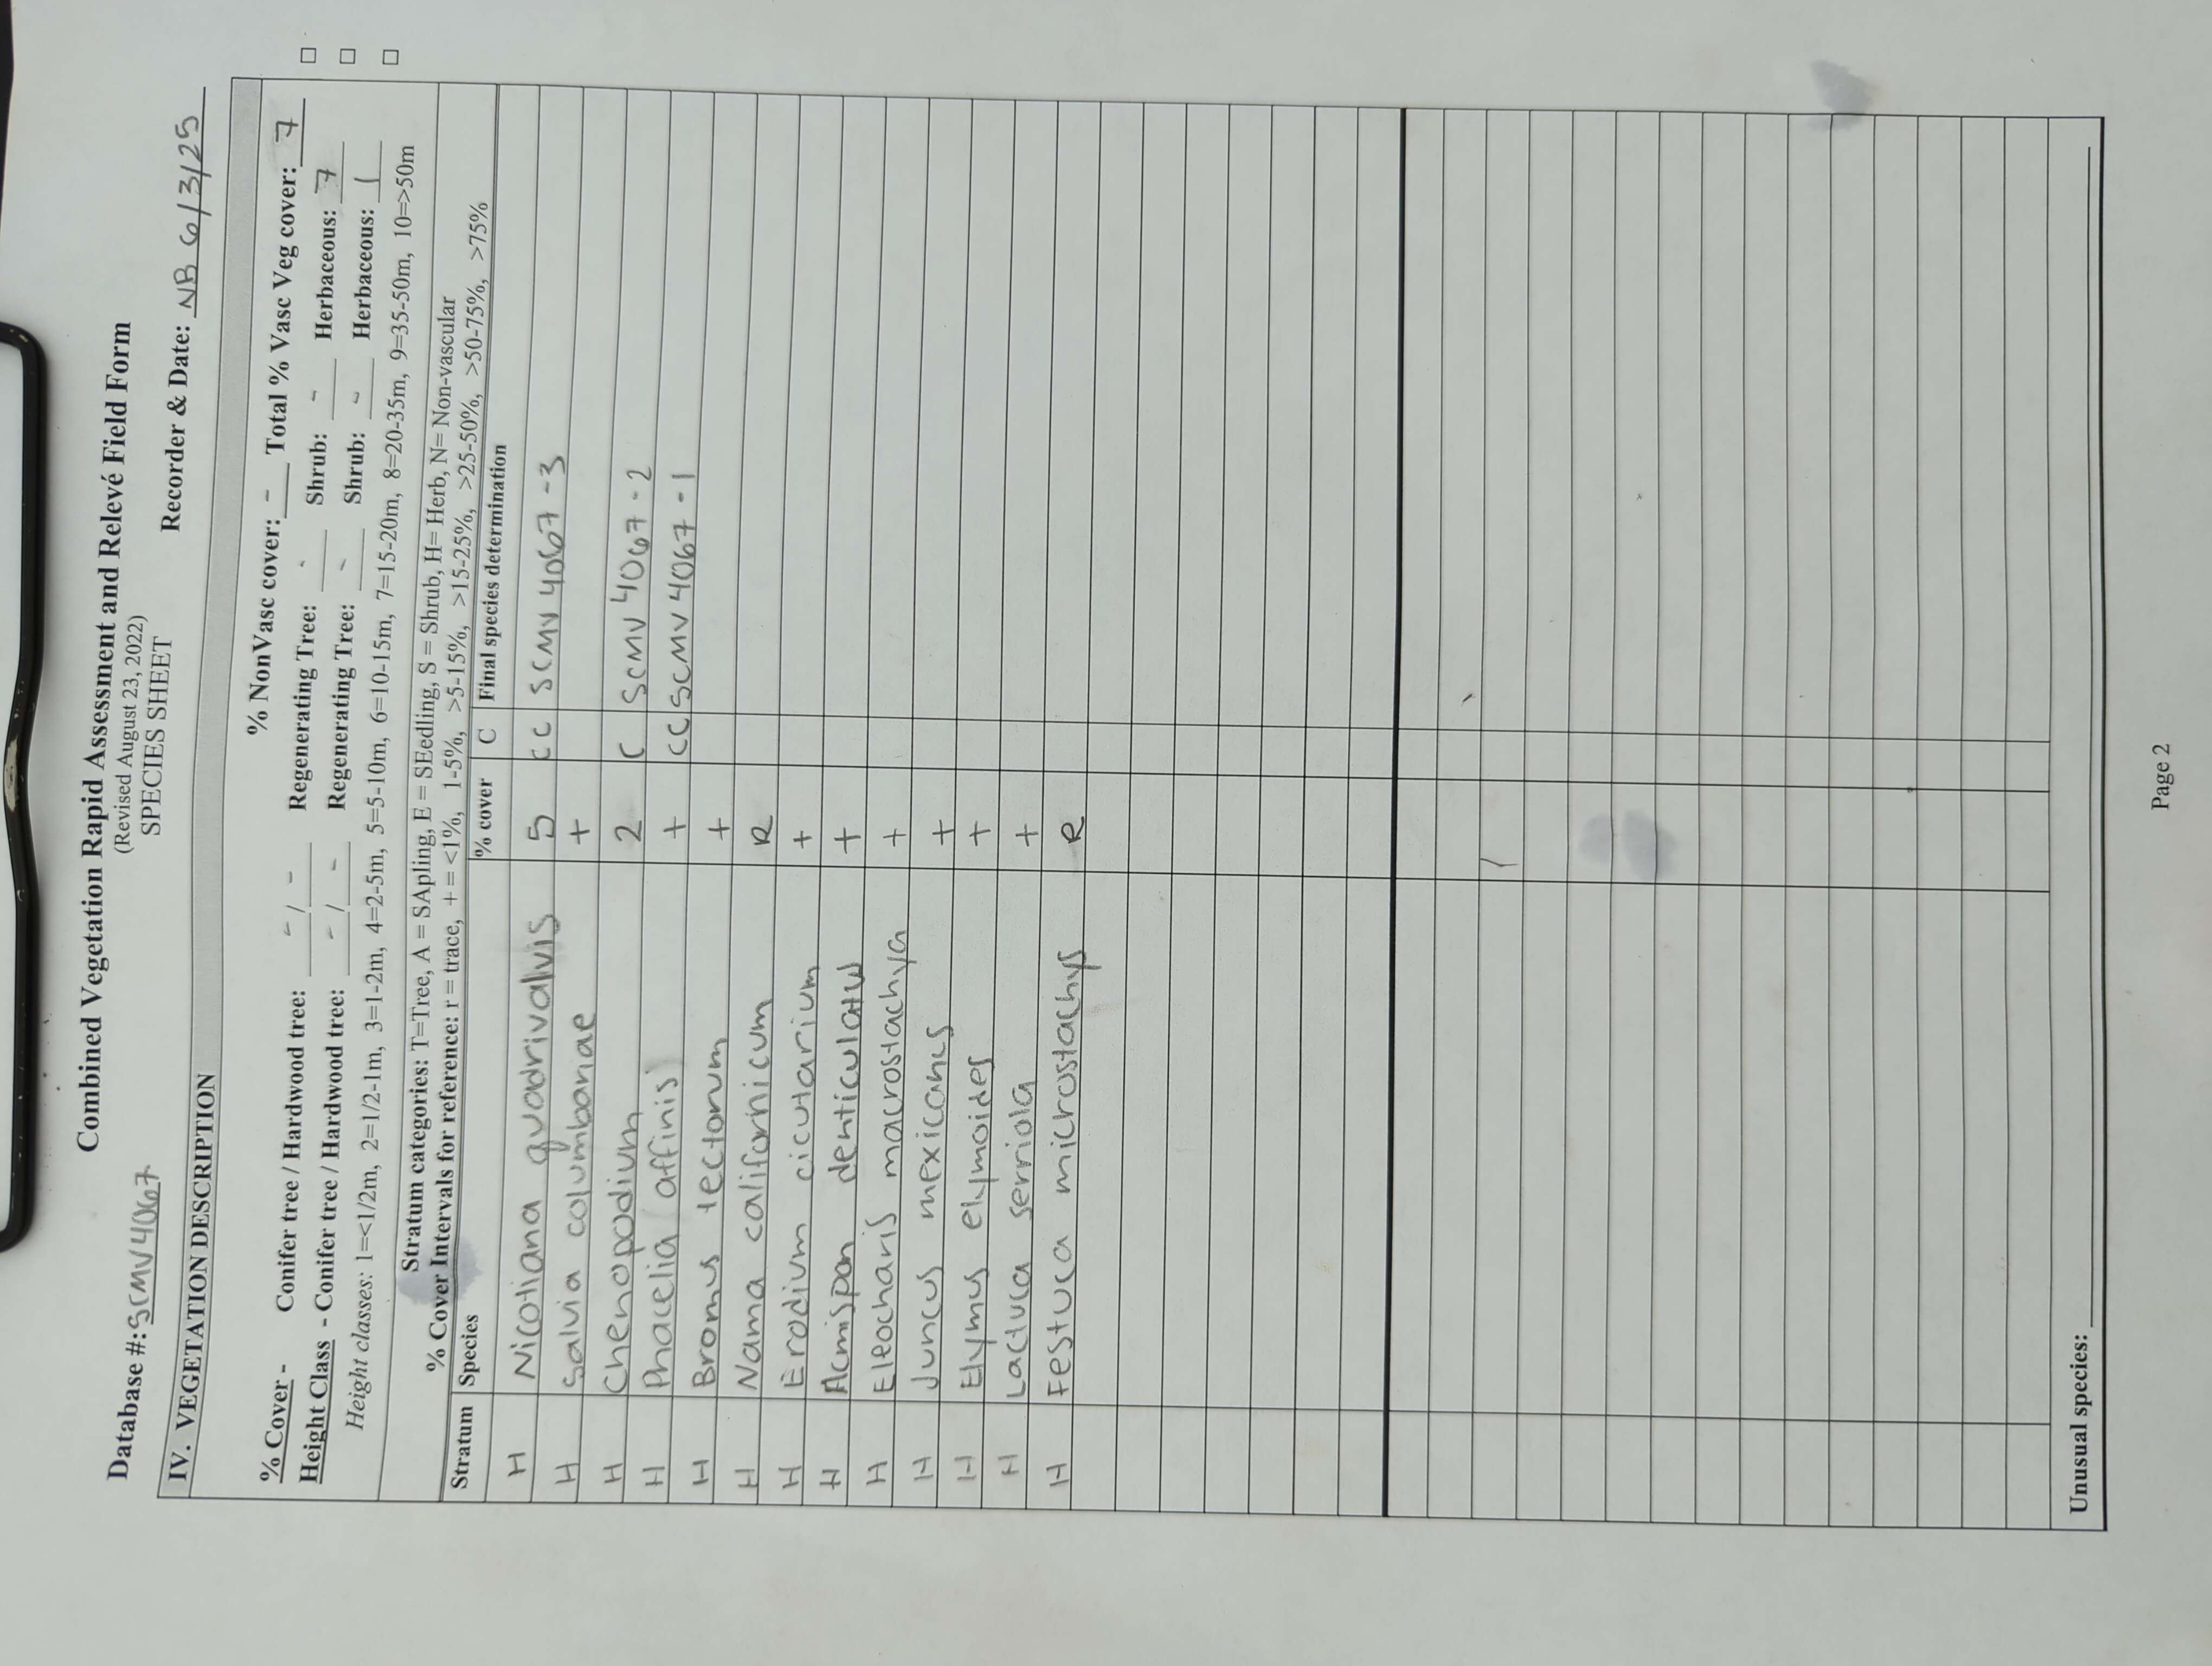 Combined Vegetation Rapid Assessment and Relevé Field Form
(Revised August 23, 2022)
SPECIES SHEET
Database #: SCMV4067 Recorder & Date: NB 6/3/25
IV. VEGETATION DESCRIPTION
% NonVasc cover: - Total % Vasc Veg cover: 7
% Cover - Conifer tree / Hardwood tree: - / - Regenerating Tree: - Shrub: - Herbaceous: 7
Height Class - Conifer tree / Hardwood tree: - / - Regenerating Tree: - Shrub: - Herbaceous: 1
Height classes: 1=<1/2m, 2=1/2-1m, 3=1-2m, 4=2-5m, 5=5-10m, 6=10-15m, 7=15-20m, 8=20-35m, 9=35-50m, 10=>50m
Stratum categories: T=Tree, A = SApling, E = SEedling, S = Shrub, H= Herb, N= Non-vascular
% Cover Intervals for reference: r = trace, + = <1%, 1-5%, >5-15%, >15-25%, >25-50%, >50-75%, >75%
Stratum Species % cover C Final species determination
H Nicotiana quadrivalvis 5 CC SCMV 4067 -3
H Salvia columbariae +
H Chenopodium 2 C SCMV 4067 -2
H Phacelia (affinis) + CC SCMV 4067 -1
H Bromus tectorum +
H Nama californicum R
H Erodium cicutarium +
H Acmispon denticulatus +
H Eleocharis macrostachya +
H Juncus mexicanus +
H Elymus elymoides +
H Lactuca serriola +
H Festuca microstachys R
Unusual species:
Page 2